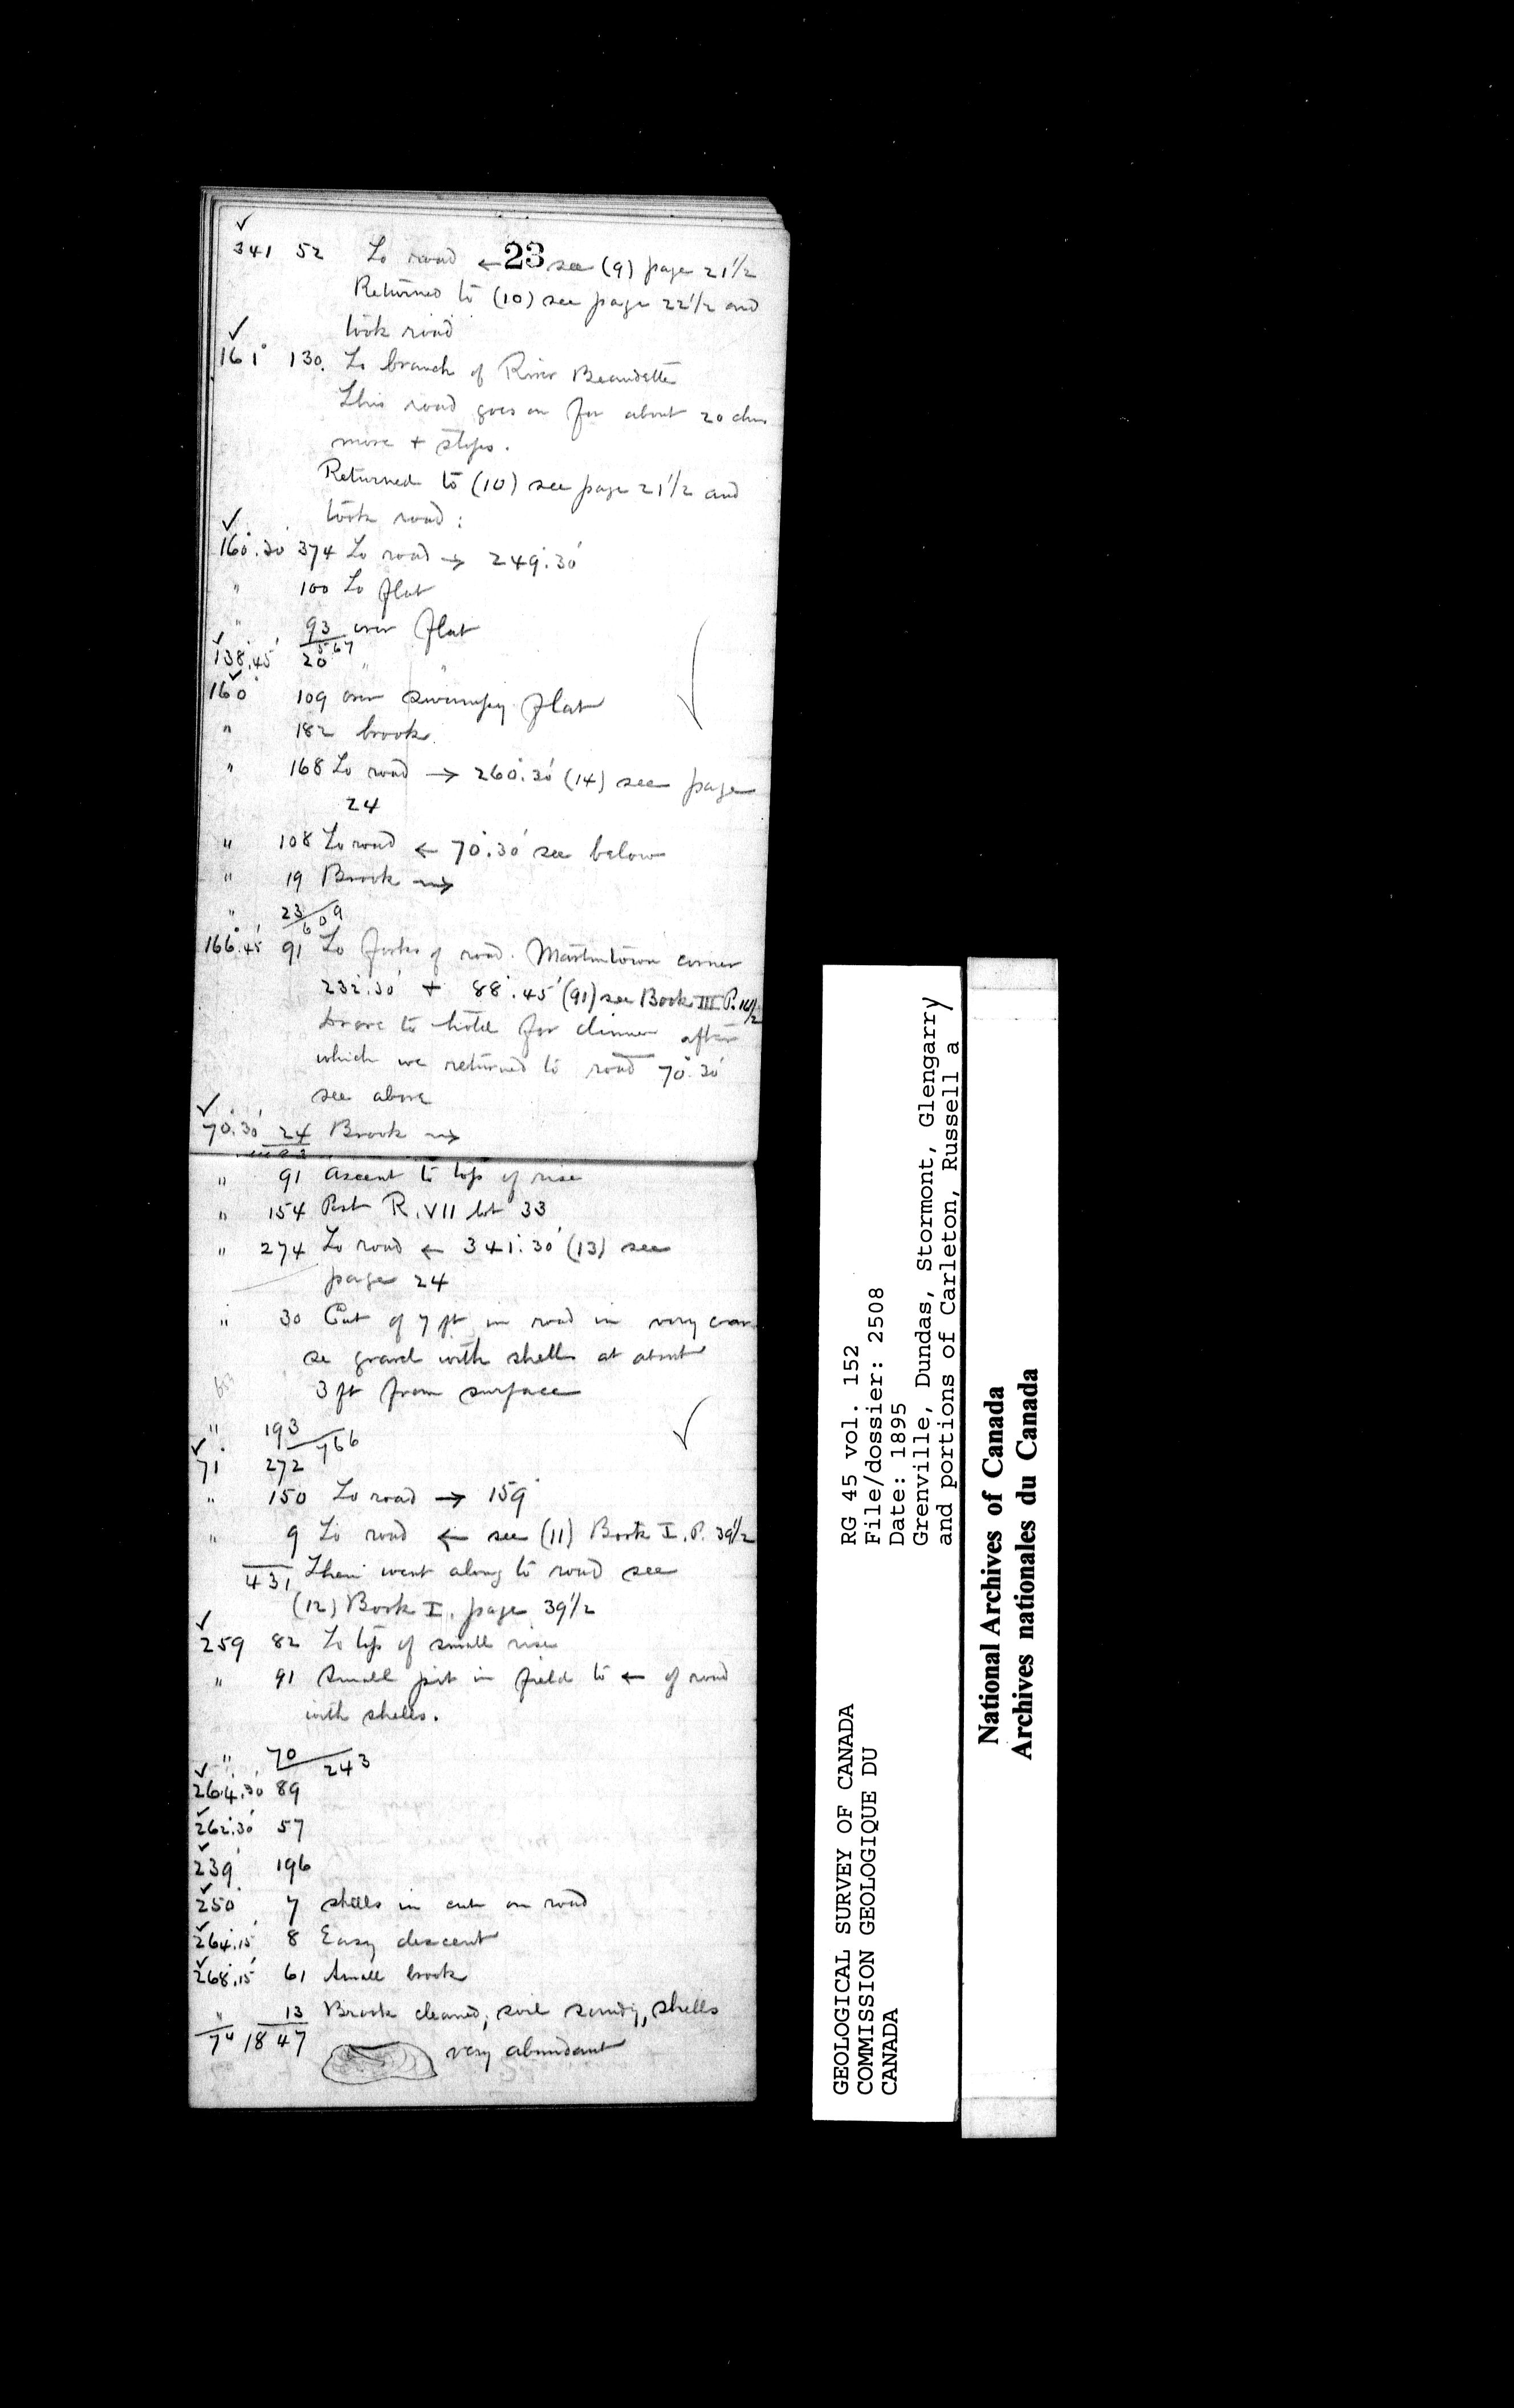 341 52 To road ← 23 see (9) page 21 1/2
Returned to (10) see page 22 1/2 and
took road
161° 130. To branch of River Beaudette
This road goes on for about 20 chs
more + stops.
Returned to (10) see page 21 1/2 and
took road:
160°.30' 374 To road → 249°.30'
" 100 To flat
" 93 over flat
567
138°.45' 20 " "
160° 109 over swampy flat
" 182 brook.
" 168 To road → 260°.30' (14) see page
24
" 108 To road ← 70°.30' see below
" 19 Brook →
" 23
609
166°.45' 91 To forks of road. Martintown corner
232°.30' + 88°.45' (91) see Book III P.
Drove to hotel for dinner after
which we returned to road 70°.30'
see above
70°.30' 24 Brook →
" 91 Ascent to top of rise
" 154 Post R. VII lot 33
" 274 To road ← 341°.30' (13) see
page 24
" 30 Cut of 7 ft in road in very coar
se gravel with shells at about
3 ft from surface
" 193
766
71° 272
" 150 To road → 159°
" 9 To road ← see (11) Book I. P. 39 1/2
431 Then went along to road see
(12) Book I. page 39 1/2
259 82 To top of small rise
" 91 Small pit in field to ← of road
with shells.
" 70
243
264°.30' 89
262°.30' 57
239° 196
250° 7 shells in cut on road
264°.15' 8 Easy descent
268°.15' 61 Small brook
" 13 Brook cleaned, soil sandy, shells
74 1847 very abundant
GEOLOGICAL SURVEY OF CANADA
COMMISSION GEOLOGIQUE DU
CANADA
RG 45 vol. 152
File/dossier: 2508
Date: 1895
Grenville, Dundas, Stormont, Glengarry
and portions of Carleton, Russell a
National Archives of Canada
Archives nationales du Canada